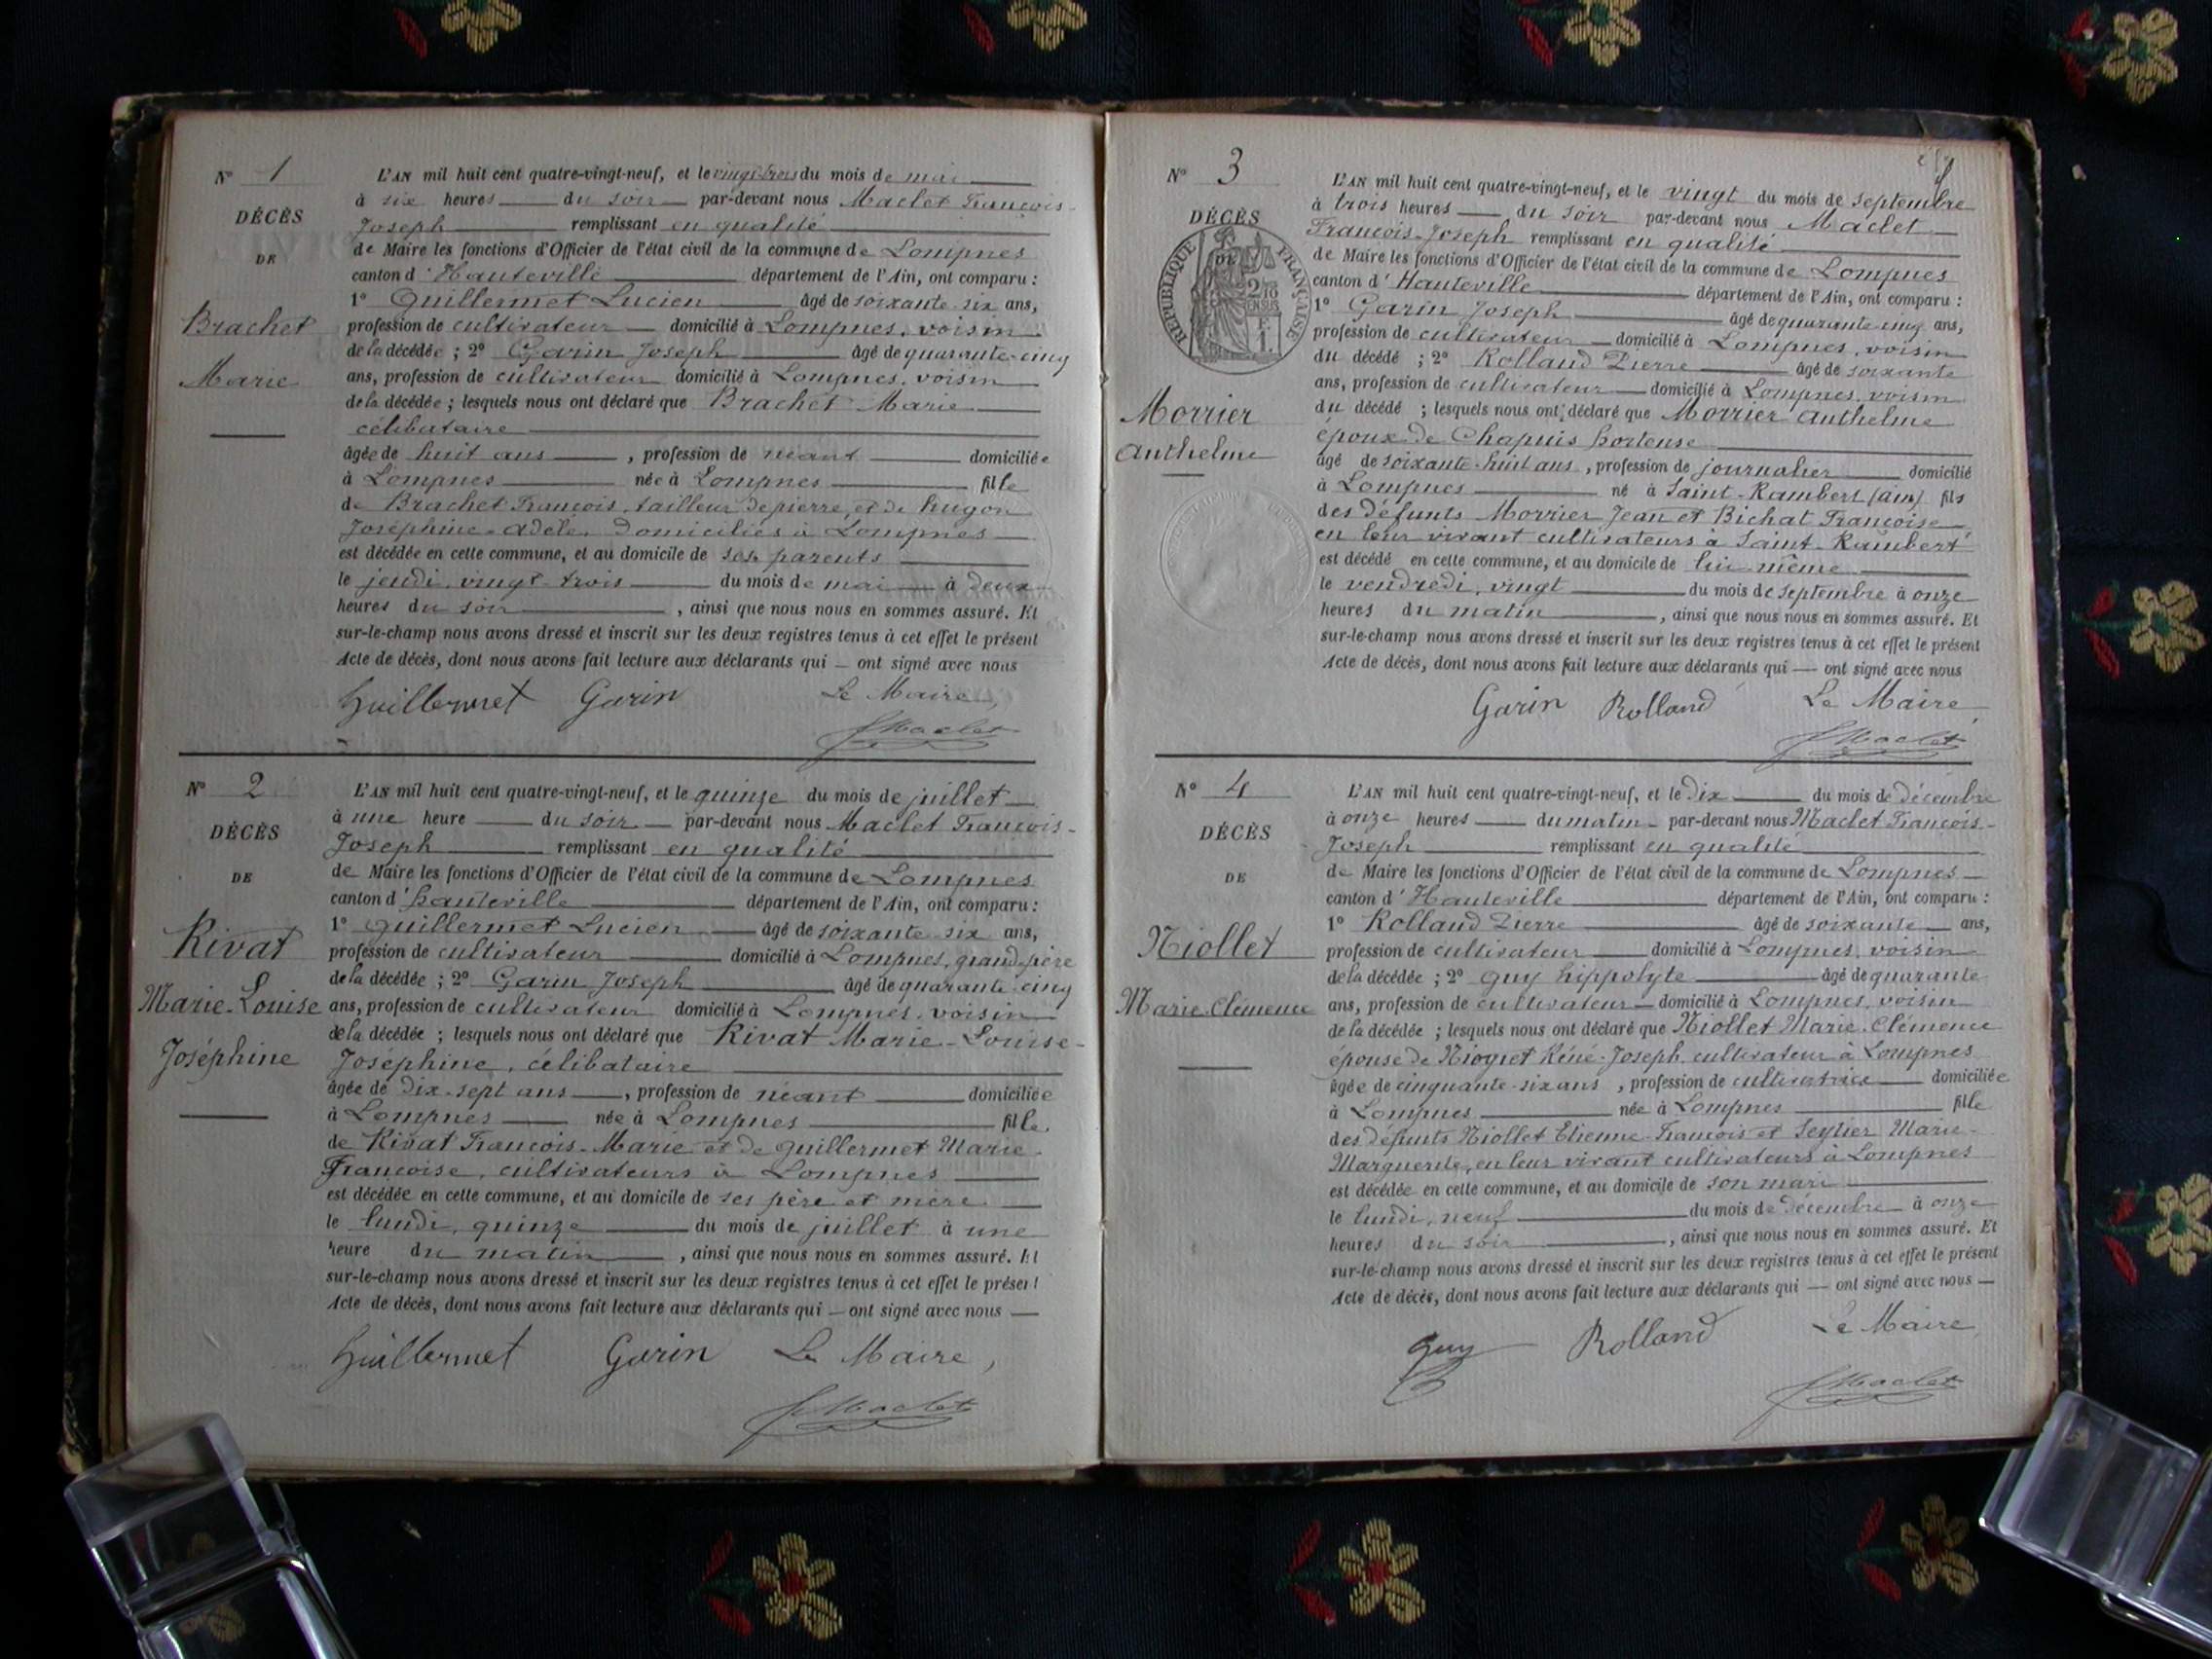 N° 1
DÉCÈS
DE
Brachet
Marie
L'AN mil huit cent quatre-vingt-neuf, et le vingt-trois du mois de mai
à six heures du soir par-devant nous Maclet François-
Joseph remplissant en qualité
de Maire les fonctions d'Officier de l'état civil de la commune de Lompnes
canton d'Hauteville département de l'Ain, ont comparu :
1° Guillermet Lucien âgé de soixante-six ans,
profession de cultivateur domicilié à Lompnes, voisin
de la décédée ; 2° Garin Joseph âgé de quarante-cinq
ans, profession de cultivateur domicilié à Lompnes, voisin
de la décédée ; lesquels nous ont déclaré que Brachet Marie
célibataire
âgée de huit ans, profession de néant domiciliée
à Lompnes née à Lompnes fille
de Brachet François, tailleur de pierre, et de Hugon
Joséphine-Adèle, domiciliés à Lompnes
est décédée en cette commune, et au domicile de ses parents
le jeudi, vingt-trois du mois de mai à deux
heures du soir, ainsi que nous nous en sommes assuré. Et
sur-le-champ nous avons dressé et inscrit sur les deux registres tenus à cet effet le présent
Acte de décès, dont nous avons fait lecture aux déclarants qui — ont signé avec nous
Guillermet Garin Le Maire,
f Maclet
N° 2
DÉCÈS
DE
Rivat
Marie-Louise
Joséphine
L'AN mil huit cent quatre-vingt-neuf, et le quinze du mois de juillet
à une heure du soir par-devant nous Maclet François-
Joseph remplissant en qualité
de Maire les fonctions d'Officier de l'état civil de la commune de Lompnes
canton d'Hauteville département de l'Ain, ont comparu :
1° Guillermet Lucien âgé de soixante-six ans,
profession de cultivateur domicilié à Lompnes, grand-père
de la décédée ; 2° Garin Joseph âgé de quarante-cinq
ans, profession de cultivateur domicilié à Lompnes, voisin
de la décédée ; lesquels nous ont déclaré que Rivat Marie-Louise-
Joséphine, célibataire
âgée de dix-sept ans, profession de néant domiciliée
à Lompnes née à Lompnes fille
de Rivat François-Marie et de Guillermet Marie-
Françoise, cultivateurs à Lompnes
est décédée en cette commune, et au domicile de ses père et mère
le lundi, quinze du mois de juillet à une
heure du matin, ainsi que nous nous en sommes assuré. Et
sur-le-champ nous avons dressé et inscrit sur les deux registres tenus à cet effet le présent
Acte de décès, dont nous avons fait lecture aux déclarants qui — ont signé avec nous —
Guillermet Garin Le Maire,
f Maclet
N° 3
DÉCÈS
RÉPUBLIQUE FRANÇAISE
Morrier
Anthelme
L'AN mil huit cent quatre-vingt-neuf, et le vingt du mois de septembre
à trois heures du soir par-devant nous Maclet
François-Joseph remplissant en qualité
de Maire les fonctions d'Officier de l'état civil de la commune de Lompnes
canton d'Hauteville département de l'Ain, ont comparu :
1° Garin Joseph âgé de quarante-cinq ans,
profession de cultivateur domicilié à Lompnes, voisin
du décédé ; 2° Rolland Pierre âgé de soixante
ans, profession de cultivateur domicilié à Lompnes, voisin
du décédé ; lesquels nous ont déclaré que Morrier Anthelme
époux de Chapuis Hortense
âgé de soixante-huit ans, profession de journalier domicilié
à Lompnes né à Saint-Rambert (ain) fils
des défunts Morrier Jean et Bichat Françoise
en leur vivant cultivateurs à Saint-Rambert
est décédé en cette commune, et au domicile de lui-même
le vendredi, vingt du mois de septembre à onze
heures du matin, ainsi que nous nous en sommes assuré. Et
sur-le-champ nous avons dressé et inscrit sur les deux registres tenus à cet effet le présent
Acte de décès, dont nous avons fait lecture aux déclarants qui — ont signé avec nous
Garin Rolland Le Maire,
f Maclet
N° 4
DÉCÈS
DE
Niollet
Marie-Clémence
L'AN mil huit cent quatre-vingt-neuf, et le dix du mois de décembre
à onze heures du matin par-devant nous Maclet François-
Joseph remplissant en qualité
de Maire les fonctions d'Officier de l'état civil de la commune de Lompnes
canton d'Hauteville département de l'Ain, ont comparu :
1° Rolland Pierre âgé de soixante ans,
profession de cultivateur domicilié à Lompnes, voisin
de la décédée ; 2° Guy Hippolyte âgé de quarante
ans, profession de cultivateur domicilié à Lompnes, voisin
de la décédée ; lesquels nous ont déclaré que Niollet Marie-Clémence
épouse de Niogret Réné-Joseph, cultivateur à Lompnes
âgée de cinquante-six ans, profession de cultivatrice domiciliée
à Lompnes née à Lompnes fille
des défunts Niollet Etienne-François et Seytier Marie-
Marguerite, en leur vivant cultivateurs à Lompnes
est décédée en cette commune, et au domicile de son mari
le lundi, neuf du mois de décembre à onze
heures du soir, ainsi que nous nous en sommes assuré. Et
sur-le-champ nous avons dressé et inscrit sur les deux registres tenus à cet effet le présent
Acte de décès, dont nous avons fait lecture aux déclarants qui — ont signé avec nous —
Guy Rolland Le Maire
f Maclet